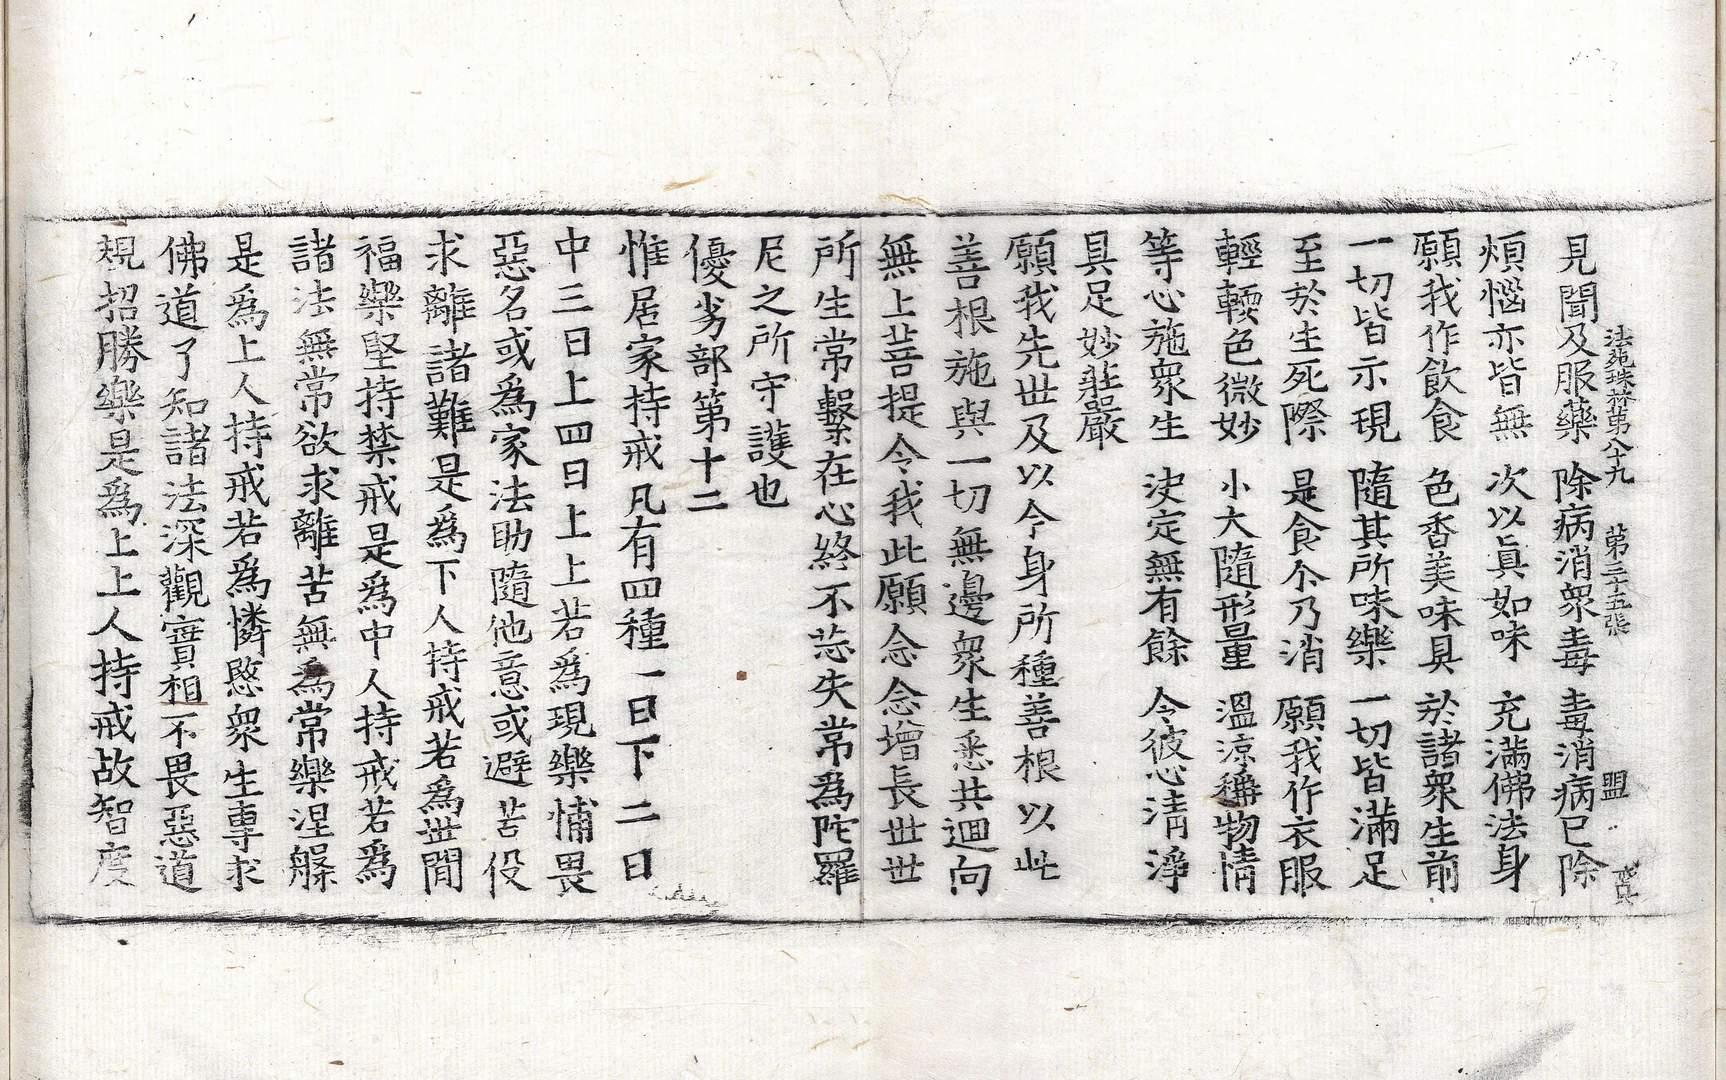 法苑珠林第八十九 第三十五張 盟
見聞及服藥 除病消衆毒 毒消病已除
煩惱亦皆無 次以眞如味 充滿佛法身
願我作飲食 色香美味具 於諸衆生前
一切皆示現 隨其所味樂 一切皆滿足
至於生死際 是食尒乃消 願我作衣服
輕輭色微妙 小大隨形量 溫涼稱物情
等心施衆生 決定無有餘 令彼心淸淨
具足妙莊嚴
願我先世及以今身所種善根以此
善根施與一切無邊衆生悉共迴向
無上菩提令我此願念念增長世世
所生常繫在心終不忘失常爲陀羅
尼之所守護也
優劣部第十二
惟居家持戒凡有四種一曰下二曰
中三曰上四曰上上若爲現樂怖畏
惡名或爲家法助隨他意或避苦役
求離諸難是爲下人持戒若爲世間
福樂堅持禁戒是爲中人持戒若爲
諸法無常欲求離苦無爲常樂涅槃
是爲上人持戒若爲憐愍衆生專求
佛道了知諸法深觀實相不畏惡道
規招勝樂是爲上上人持戒故智度